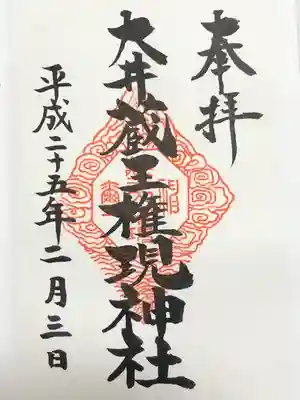 奉拝
大井蔵王権現神社
平成二十五年二月三日